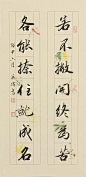 若不撇開終為苦
各能捺住就成名